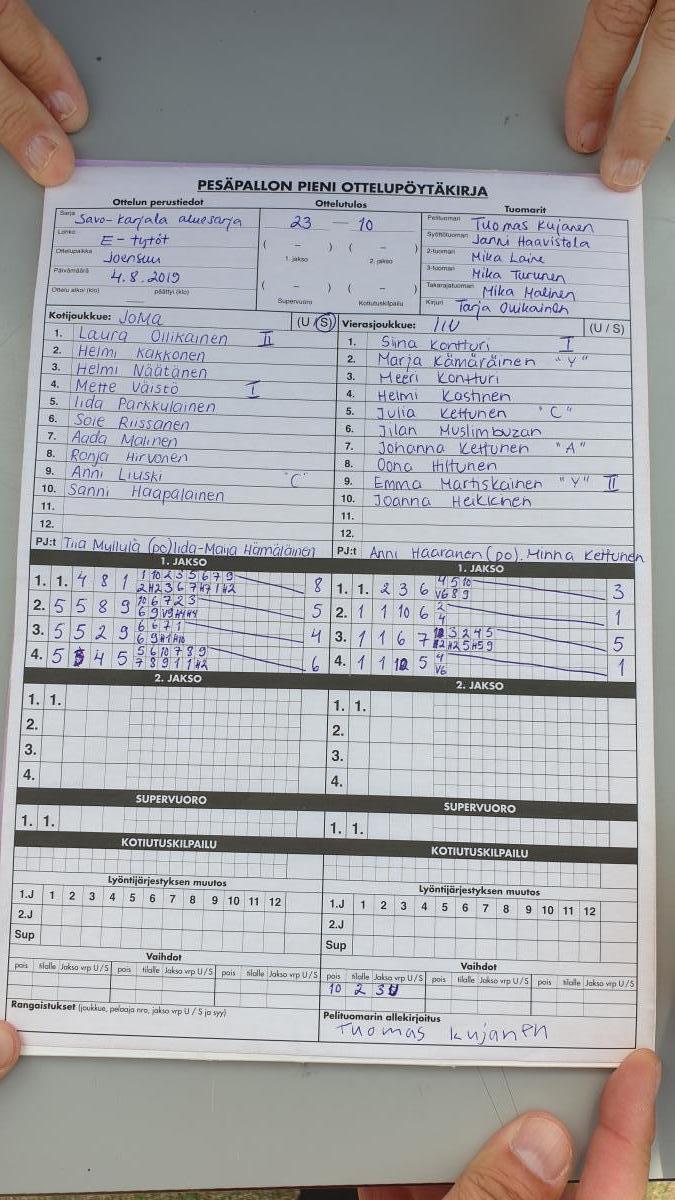 PESÄPALLON PIENI OTTELUPÖYTÄKIRJA
Ottelun perustiedot
Sarja Savo-Karjala aluesarja
Lohko E-tytöt
Ottelupaikka Joensuu
Päivämäärä 4.8.2019
Ottelu alkoi (klo) päättyi (klo)
Ottelutulos
23 — 10
( – ) ( – )
1. jakso 2. jakso
( – ) ( – )
Supervuoro Kotiutuskilpailu
Tuomarit
Pelituomari Tuomas Kujanen
Syöttötuomari Janni Haavistola
2-tuomari Mika Laine
3-tuomari Mika Turunen
Takarajatuomari Mika Malinen
Kirjuri Tarja Ovikainen
Kotijoukkue: JoMa (U / S)
1. Laura Ollikainen II
2. Helmi Kakkonen
3. Helmi Näätänen
4. Mette Väistö I
5. Iida Parkkulainen
6. Soie Riissanen
7. Aada Malinen
8. Ronja Hirvonen
9. Anni Liuski "C"
10. Sanni Haapalainen
11.
12.
PJ:t Tiia Myllylä (po) Iida-Maija Hämäläinen
Vierasjoukkue: (U / S)
1. Siina Kontturi I
2. Marja Kämäräinen "Y"
3. Meeri Kontturi
4. Helmi Kastinen
5. Julia Kettunen "C"
6. Jilan Muslimbuzan
7. Johanna Kettunen "A"
8. Oona Hiltunen
9. Emma Martiskainen "Y" II
10. Joanna Heikkinen
11.
12.
PJ:t Anni Haaranen (po). Minna Kettunen
1. JAKSO
1. 1. 4 8 1 8
2. 5 5 8 9 5
3. 5 5 2 9 4
4. 5 4 5 6
1. JAKSO
1. 1. 2 3 6 3
2. 1 1 10 6 1
3. 1 1 6 7 5
4. 1 1 5 1
2. JAKSO
1. 1.
2.
3.
4.
2. JAKSO
1. 1.
2.
3.
4.
SUPERVUORO
1. 1.
SUPERVUORO
1. 1.
KOTIUTUSKILPAILU
KOTIUTUSKILPAILU
Lyöntijärjestyksen muutos
1.J 1 2 3 4 5 6 7 8 9 10 11 12
2.J
Sup
Lyöntijärjestyksen muutos
1.J 1 2 3 4 5 6 7 8 9 10 11 12
2.J
Sup
Vaihdot
pois tilalle Jakso vrp U / S pois tilalle Jakso vrp U / S pois tilalle Jakso vrp U / S
Vaihdot
pois tilalle Jakso vrp U / S pois tilalle Jakso vrp U / S pois tilalle Jakso vrp U / S
10 2 3U
Rangaistukset (joukkue, pelaaja nro, jakso vrp U / S ja syy)
Pelituomarin allekirjoitus
Tuomas Kujanen